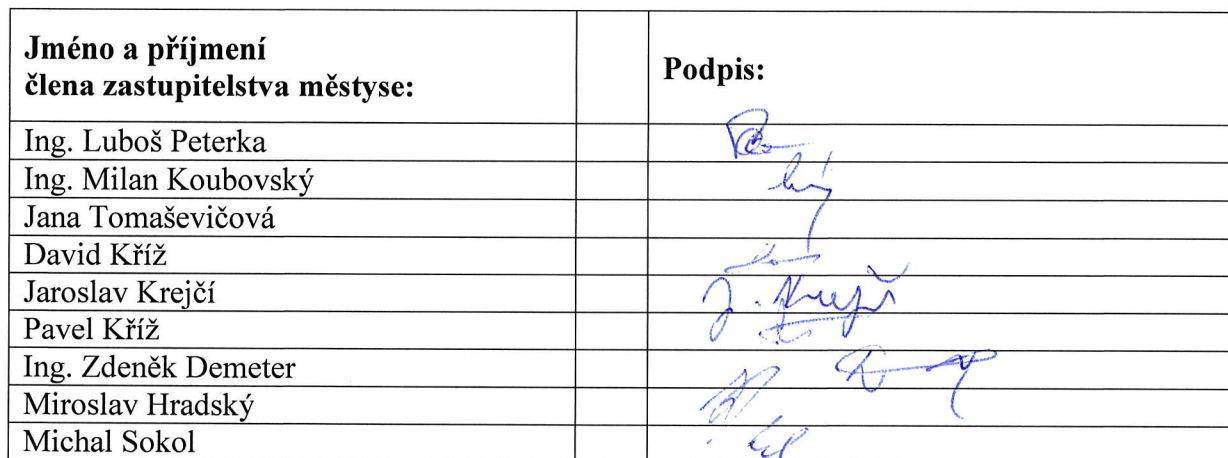 Jméno a příjmení
člena zastupitelstva městyse:
Podpis:
Ing. Luboš Peterka
Ing. Milan Koubovský
Jana Tomaševičová
David Kříž
Jaroslav Krejčí
J. Krejčí
Pavel Kříž
Ing. Zdeněk Demeter
Miroslav Hradský
Michal Sokol